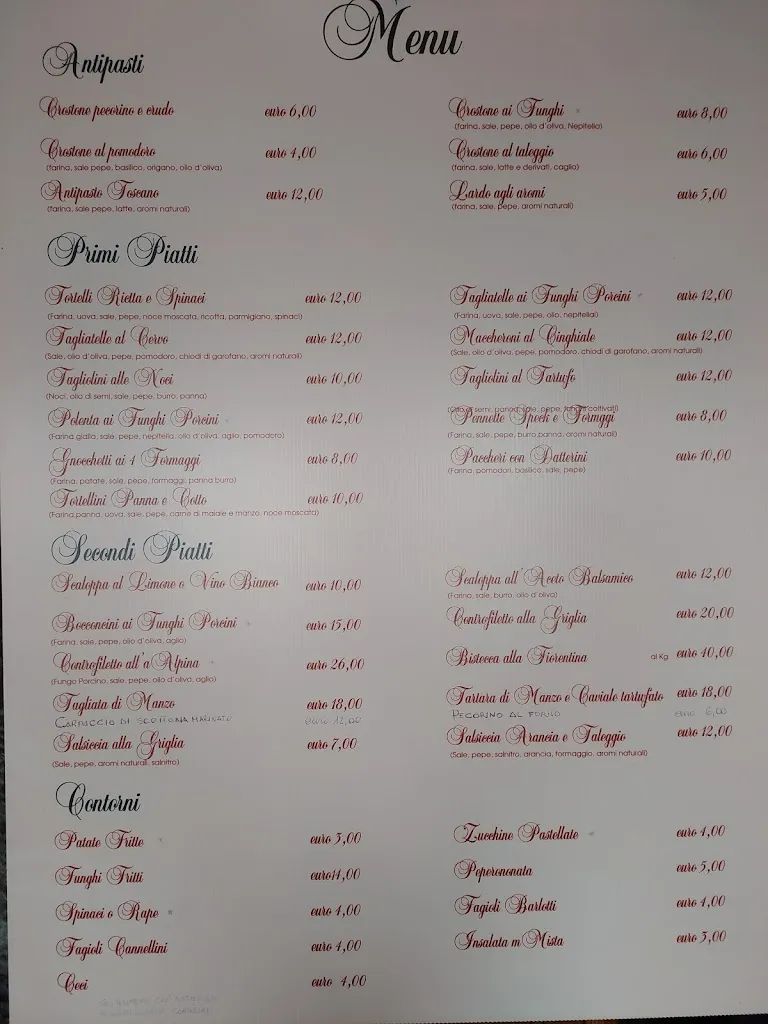 Menu
Antipasti
Crostone pecorino e crudo euro 6,00
Crostone al pomodoro euro 4,00
(farina, sale pepe, basilico, origano, olio d'oliva)
Antipasto Toscano euro 12,00
(farina, sale pepe, latte, aromi naturali)
Crostone ai Funghi euro 8,00
(farina, sale, pepe, olio d'oliva, Nepitella)
Crostone al taleggio euro 6,00
(farina, sale, latte e derivati, caglio)
Lardo agli aromi euro 5,00
(farina, sale, pepe, aromi naturali)
Primi Piatti
Tortelli Ricotta e Spinaci euro 12,00
(Farina, uova, sale, pepe, noce moscata, ricotta, parmigiano, spinaci)
Tagliatelle al Cervo euro 12,00
(Sale, olio d'oliva, pepe, pomodoro, chiodi di garofano, aromi naturali)
Tagliolini alle Noci euro 10,00
(Noci, olio di semi, sale, pepe, burro, panna)
Polenta ai Funghi Porcini euro 12,00
(Farina gialla, sale, pepe, nepitella, olio d'oliva, aglio, pomodoro)
Gnocchetti ai 4 Formaggi euro 8,00
(Farina, patate, sale, pepe, formaggi, panna burro)
Tortellini Panna e Cotto euro 10,00
(Farina,panna, uova, sale, pepe, carne di maiale e manzo, noce moscata)
Tagliatelle ai Funghi Porcini euro 12,00
(Farina, uova, sale, pepe, olio, nepitella)
Maccheroni al Cinghiale euro 12,00
(Sale, olio d'oliva, pepe, pomodoro, chiodi di garofano, aromi naturali)
Tagliolini al Tartufo euro 12,00
(Olio di semi, panna, sale, pepe, funghi coltivati)
Pennette Speck e Formggi euro 8,00
(Farina, sale, pepe, burro,panna, aromi naturali)
Paccheri con Datterini euro 10,00
(Farina, pomodori, basilico, sale, pepe)
Secondi Piatti
Scaloppa al Limone o Vino Bianco euro 10,00
Bocconcini ai Funghi Porcini euro 15,00
(Farina, sale, pepe, olio d'oliva, aglio)
Controfiletto all'a Alpina euro 26,00
(Fungo Porcino, sale, pepe, olio d'oliva, aglio)
Tagliata di Manzo euro 18,00
CARPACCIO DI SCOTTONA MARINATO euro 12,00
Salsiccia alla Griglia euro 7,00
(Sale, pepe, aromi naturali, salnitro)
Scaloppa all'Aceto Balsamico euro 12,00
(Farina, sale, burro, olio d'oliva)
Controfiletto alla Griglia euro 20,00
Bistecca alla Fiorentina al Kg euro 40,00
Tartara di Manzo e Caviale tartufato euro 18,00
PECORINO AL FORNO euro 6,00
Salsiccia Arancia e Taleggio euro 12,00
(Sale, pepe, salnitro, arancia, formaggio, aromi naturali)
Contorni
Patate Fritte euro 3,00
Funghi Fritti euro14,00
Spinaci o Rape euro 4,00
Fagioli Cannellini euro 4,00
Ceci euro 4,00
Zucchine Pastellate euro 4,00
Peperononata euro 5,00
Fagioli Barlotti euro 4,00
Insalata m Mista euro 3,00